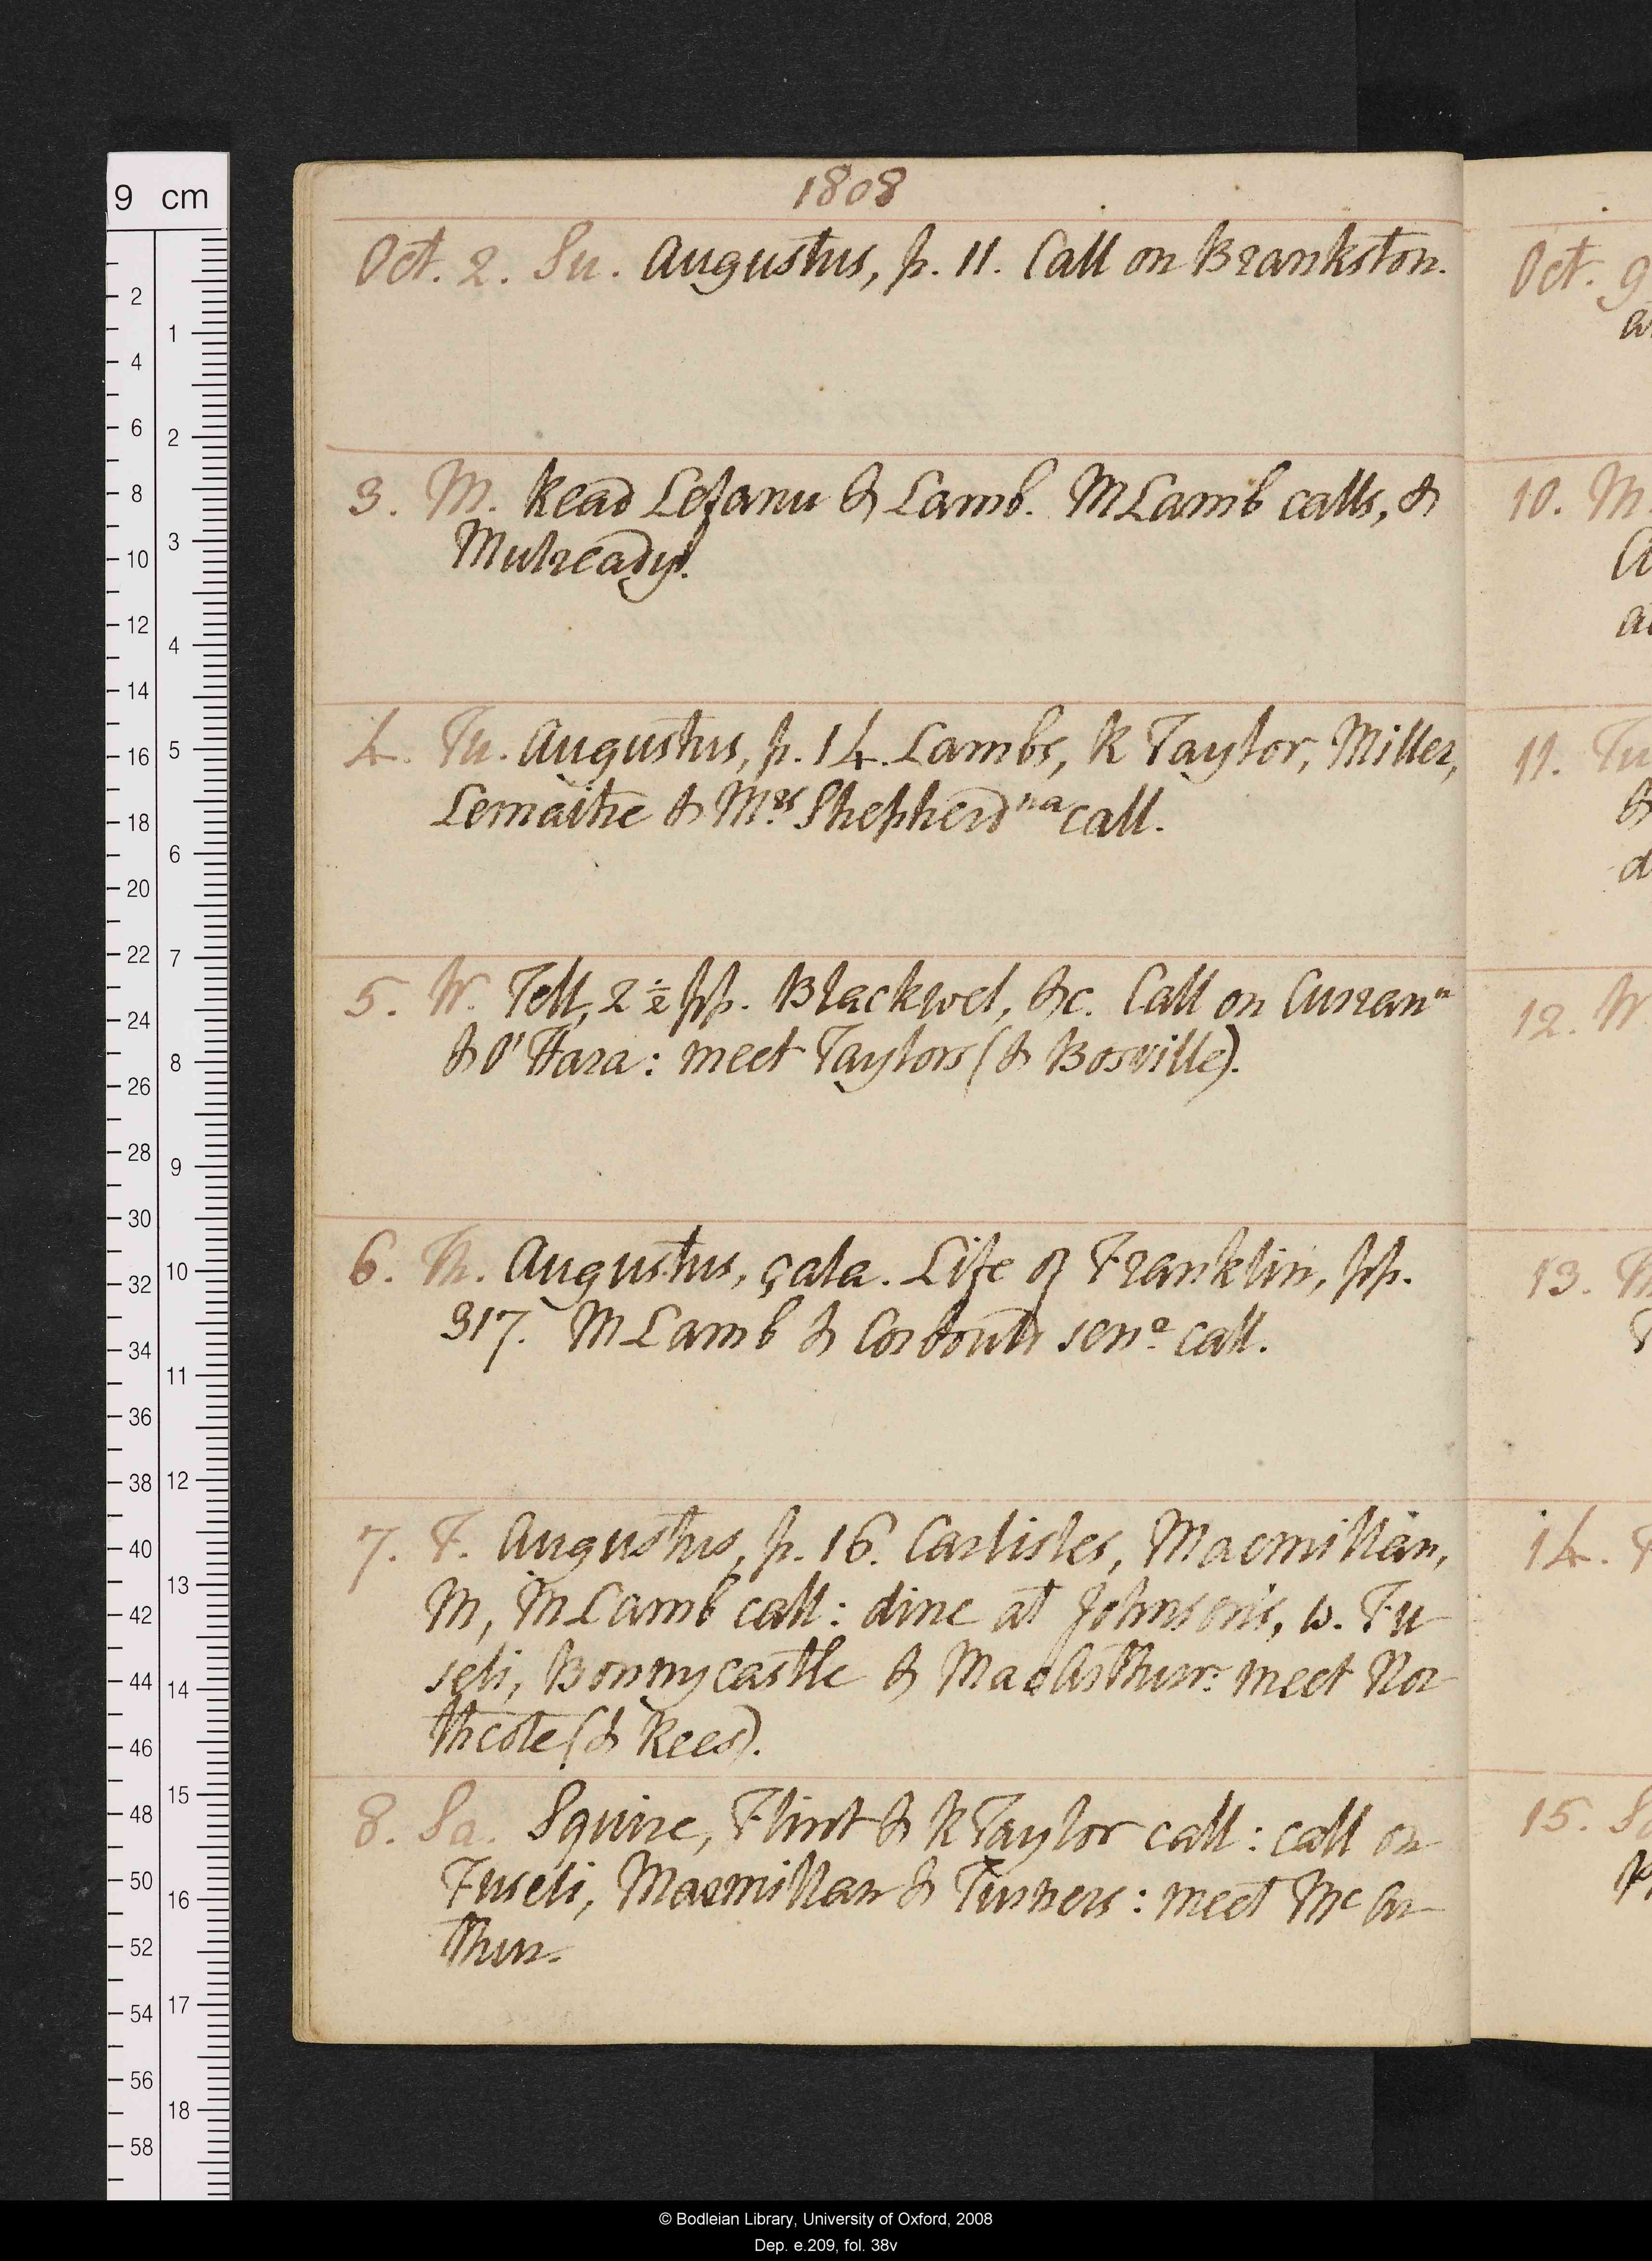 1808
Oct. 2. Su. Augustus, p. 11. Call on Brankston.
3. M. Read Lefanu & Lamb. M Lamb calls, &
Mulready.
4. Tu. Augustus, p. 14. Lambs, R Taylor, Miller,
Lemaitre & Mrs Shepherd na call.
5. W. Tell, 2 ½ pp. Blackwel, &c. Call on Curran n
& O'Hara: meet Taylors (& Bosville).
6. Th. Augustus, çala. Life of Franklin, pp.
317. M Lamb & Corbould senr. call.
7. F. Augustus, p. 16. Carlisles, Macmillan,
M, M Lamb call: dine at Johnson's, w. Fu
seli, Bonnycastle & MacArthur: meet Nor
thcote (& Rees).
8. Sa. Squire, Flint & R Taylor call: call on
Fuseli, Macmillan & Turners: meet Mc Ar
thur.
Oct. 9
10. M.
11. Tu
&
d
12. W
13. Th
14. F
15. Sa
9 cm
2
4
6
8
10
12
14
16
18
20
22
24
26
28
30
32
34
36
38
40
42
44
46
48
50
52
54
56
58
1
2
3
4
5
6
7
8
9
10
11
12
13
14
15
16
17
18
© Bodleian Library, University of Oxford, 2008
Dep. e.209, fol. 38v